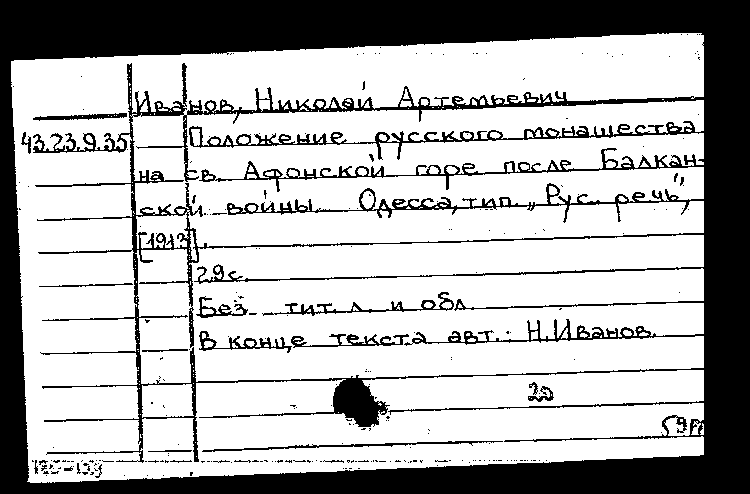 Иванов, Николай Артемьевич
43.23.9.35 Положение русского монашества
на св. Афонской горе после Балкан-
ской войны. Одесса, тип. „Рус. речь",
[1913].
29с.
Без тит. л. и обл.
В конце текста авт.: Н.Иванов.
20